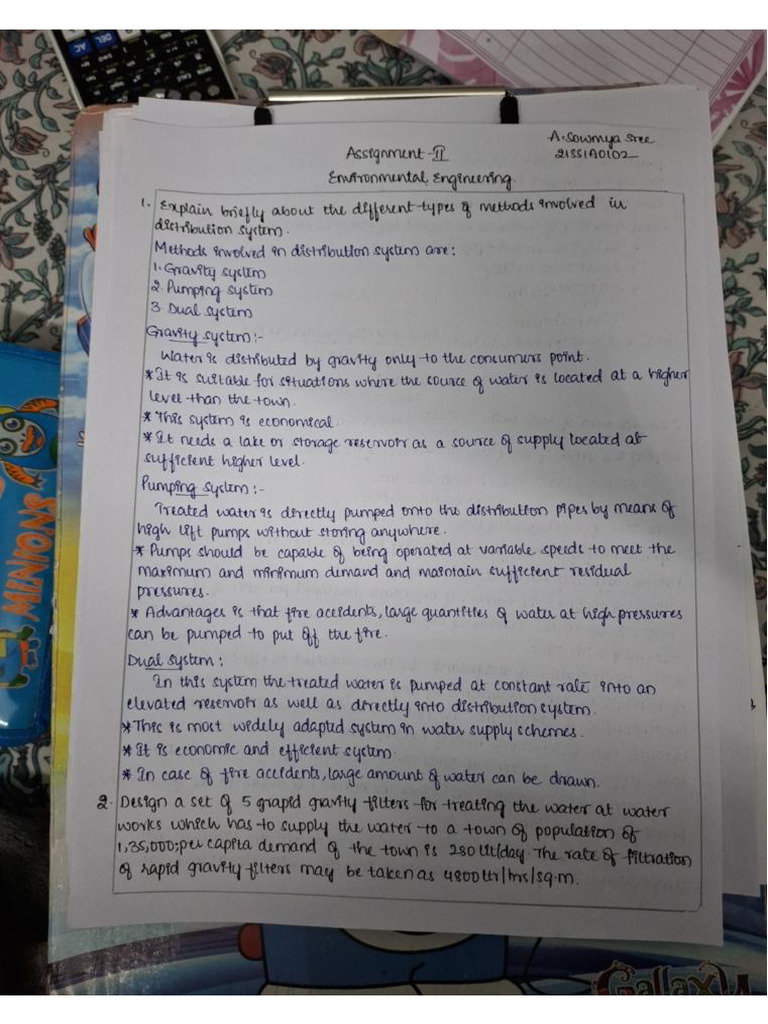 DEL
AC
A. Sowmya Sree
Assignment-II
21SS1A0102
Environmental Engineering
1. Explain briefly about the different types of methods involved in
distribution system.
Methods involved in distribution system are:
1. Gravity system
2. Pumping system
3. Dual system
Gravity system:-
Water is distributed by gravity only to the consumers point.
* It is suitable for situations where the source of water is located at a higher
level than the town.
* This system is economical.
* It needs a lake or storage reservoir as a source of supply located at
sufficient higher level.
Pumping system:-
Treated water is directly pumped onto the distribution pipes by means of
high lift pumps without storing anywhere.
* Pumps should be capable of being operated at variable speeds to meet the
maximum and minimum demand and maintain sufficient residual
pressures.
* Advantages is that fire accidents, large quantities of water at high pressures
can be pumped to put off the fire.
Dual system:
In this system the treated water is pumped at constant rate into an
elevated reservoir as well as directly into distribution system.
* This is most widely adapted system in water supply schemes.
* It is economic and efficient system.
* In case of fire accidents, large amount of water can be drawn.
2. Design a set of 5 grapid gravity filters for treating the water at water
works which has to supply the water to a town of population of
1,35,000; per capita demand of the town is 280 lit/day. The rate of filtration
of rapid gravity filters may be taken as 4800 ltr/hrs/sq.m.
MINIONS
Galaxy